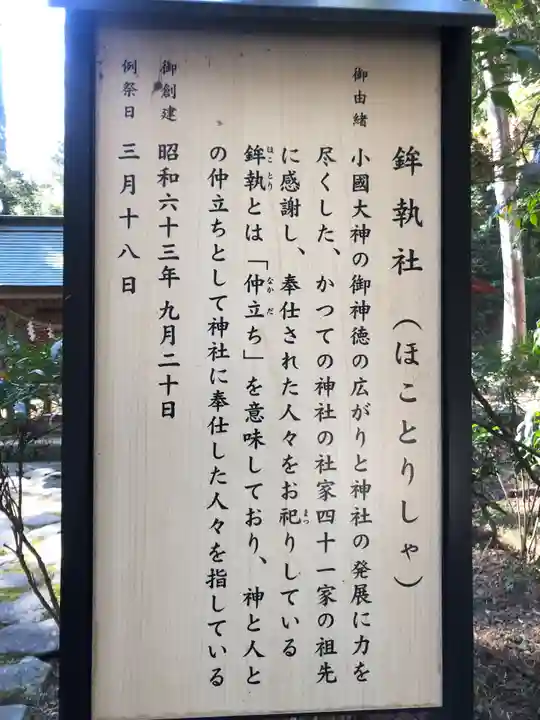 鉾執社（ほことりしゃ）
御由緒 小國大神の御神徳の広がりと神社の発展に力を
尽くした、かつての神社の社家四十一家の祖先
に感謝し、奉仕された人々をお祀りしている
鉾執とは「仲立ち」を意味しており、神と人と
の仲立ちとして神社に奉仕した人々を指している
御創建 昭和六十三年九月二十日
例祭日 三月十八日